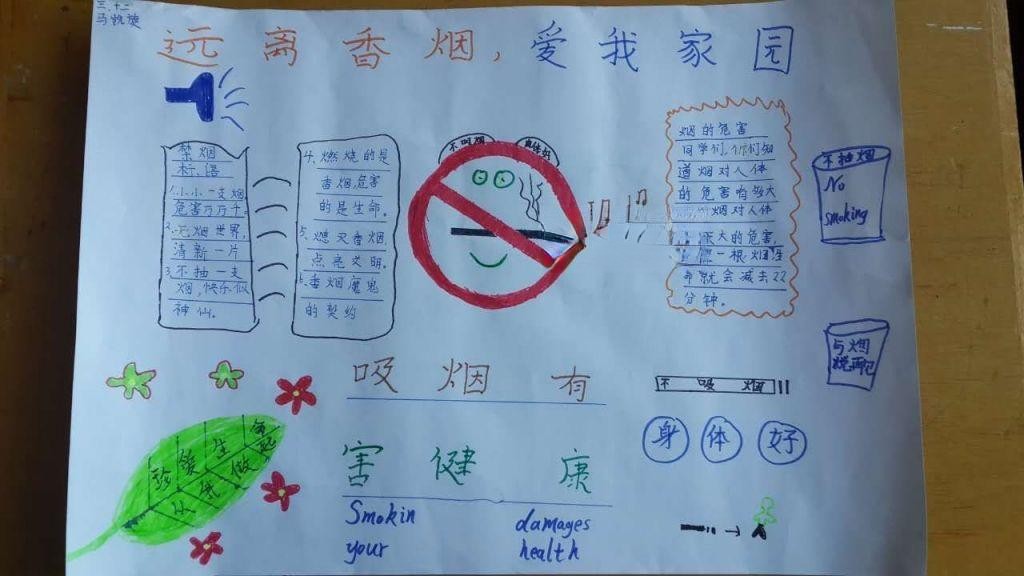 三.十二
马凯旋
远离香烟,爱我家园
禁烟
标语
1.小小一支烟
危害万万千。
2.无烟世界,
清新一片
3.不抽一支
烟,快乐似
神仙。
4.燃烧的是
香烟,危害
的是生命。
5.熄灭香烟,
点亮文明。
6.香烟魔鬼
的契约
不吸烟
身体好
烟的危害
同学们,你们知
道烟对人体
的危害有多大
烟对人体
天大的危害,
一根烟生
命就会减去22
分钟。
不抽烟
No
smoking
与烟
说再见
吸烟有
不吸烟
身体好
害健康
珍爱生命
从我做起
Smokin damages
your health